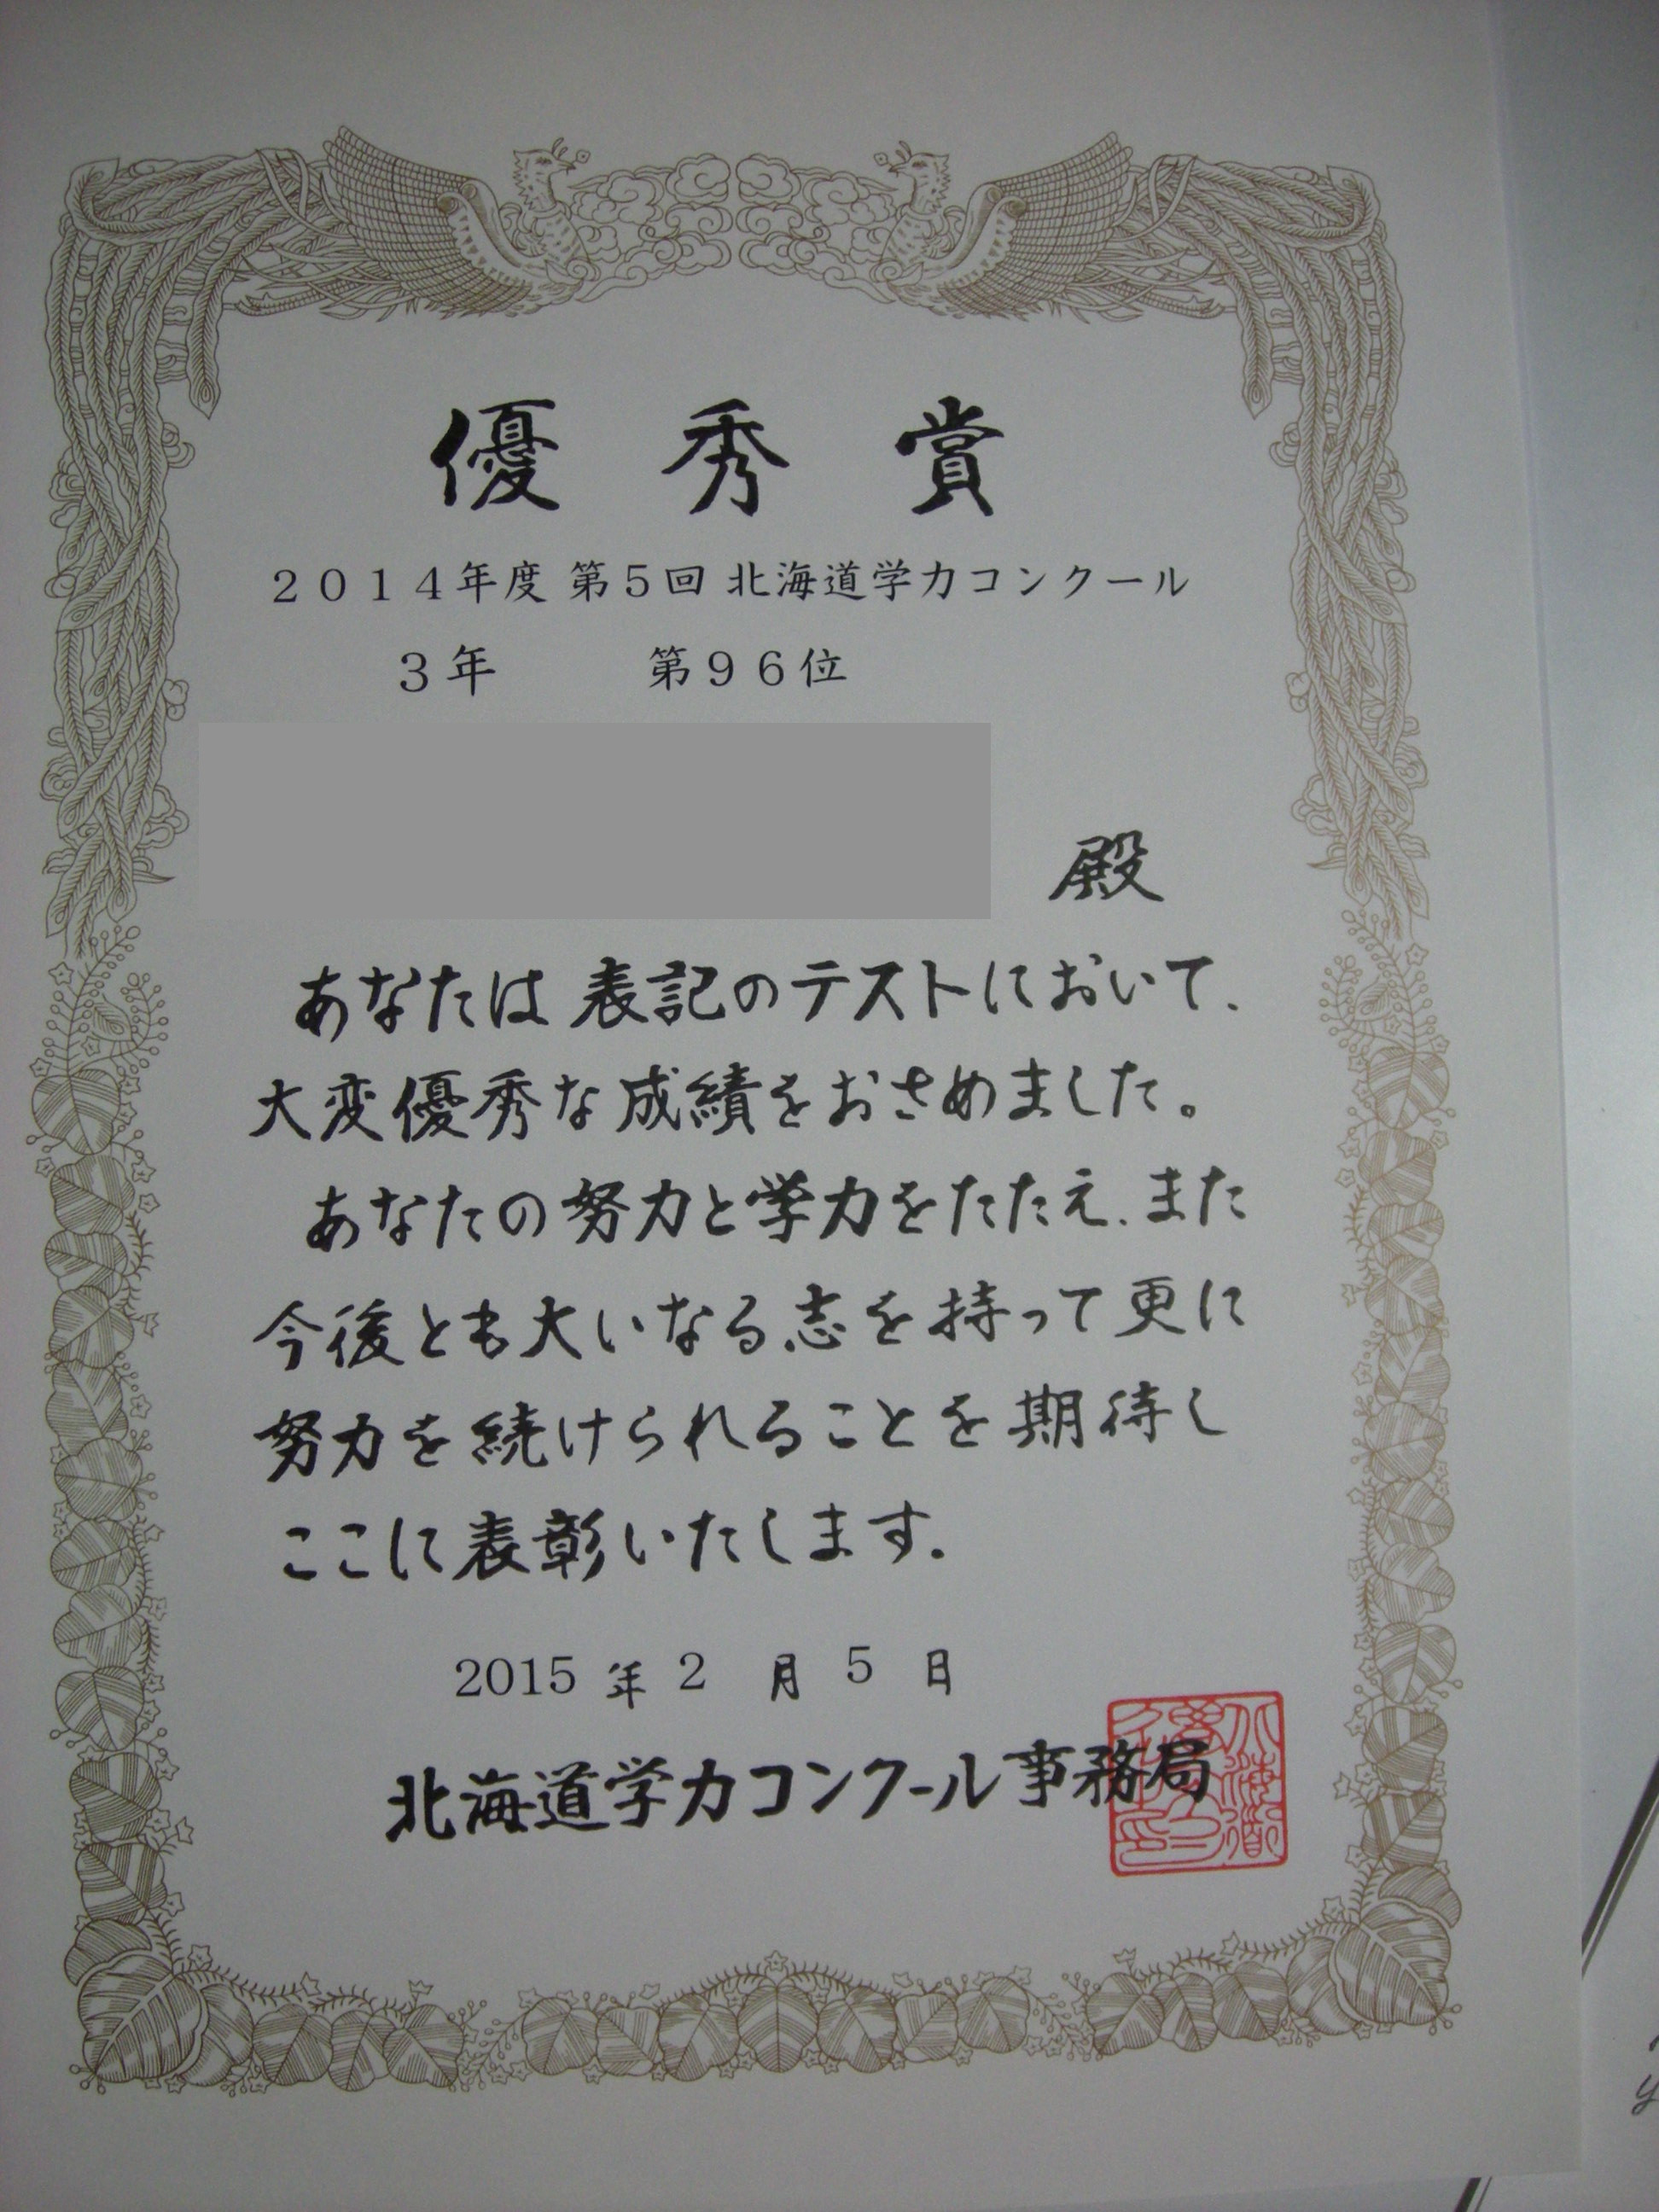 優秀賞
2014年度 第5回 北海道学力コンクール
3年 第96位
殿
あなたは表記のテストにおいて、
大変優秀な成績をおさめました。
あなたの努力と学力をたたえ、また
今後とも大いなる志を持って更に
努力を続けられることを期待し
ここに表彰いたします。
2015 年 2 月 5 日
北海道学力コンクール事務局